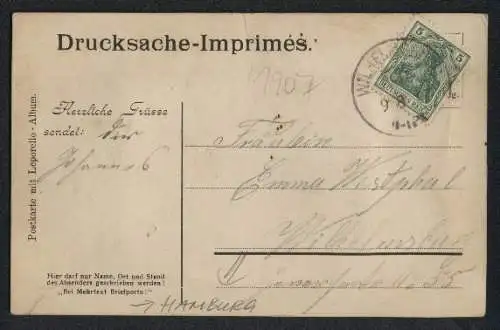 Drucksache-Imprimés.
1907
5 5
DEUTSCHES REICH
WILHELMSBURG
9 8
Herzliche Grüsse
sendet: Dir
Johannes
Fräulein
Emma Westphal
Wilhelmsburg
Postkarte mit Leporello-Album.
Hier darf nur Name, Ort und Stand
des Absenders geschrieben werden!
„Bei Mehrtext Briefporto!"
→ HAMBURG